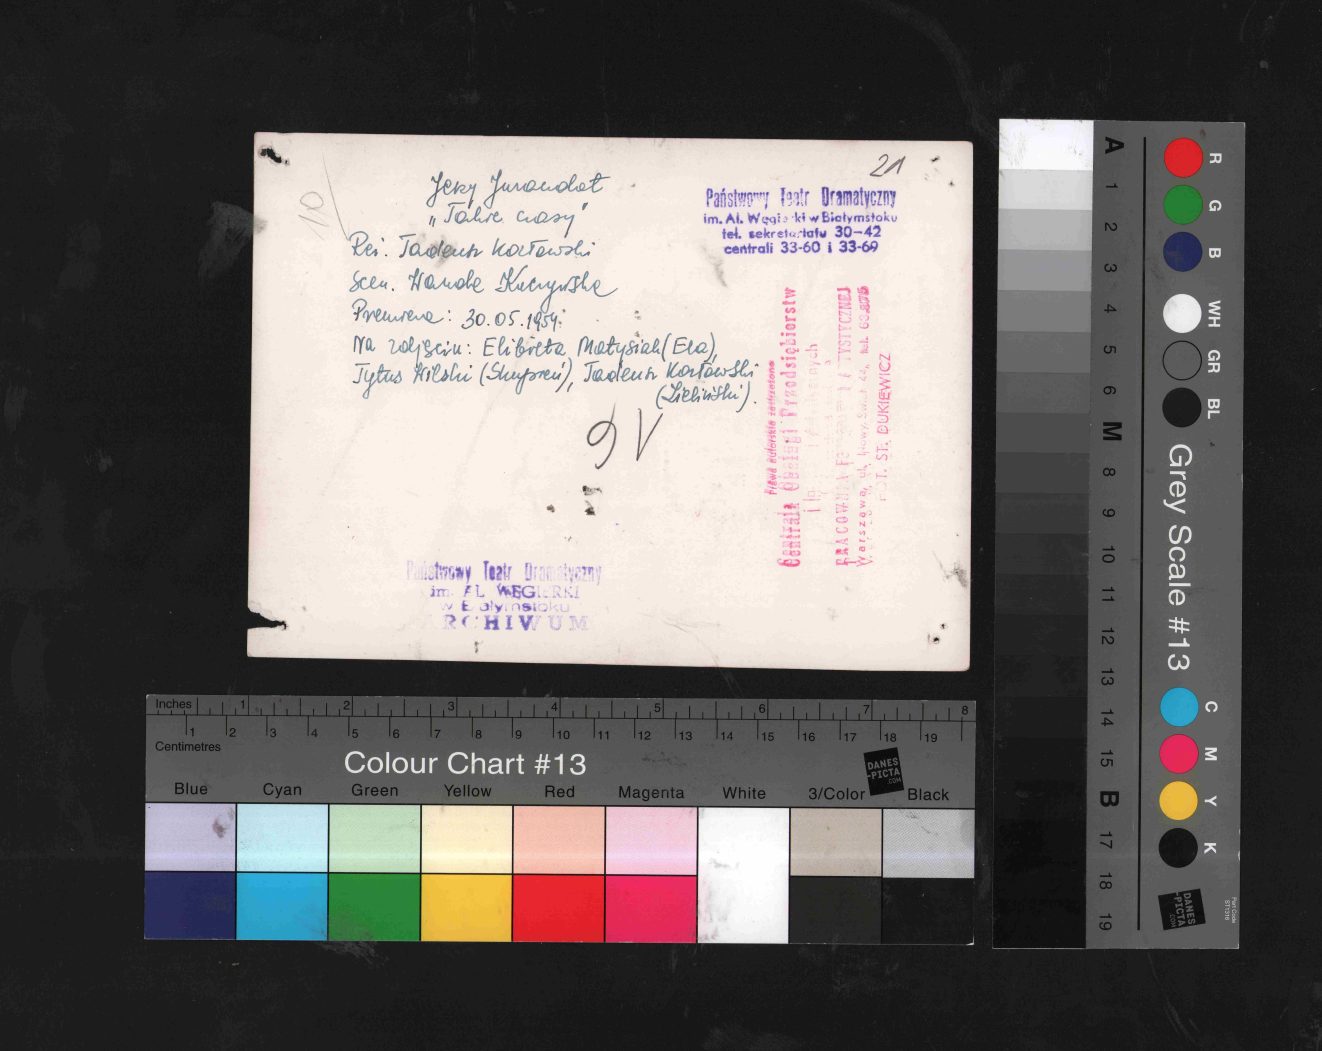 21
110
Jerzy Jurandot
"Takie czasy"
Reż. Tadeusz Kozłowski
Scen. Wanda
Premiera: 30.05.1954.
Na zdjęciu: Elżbieta Matysiak (Ela),
Tytus Wilski (Skupień), Tadeusz Kozłowski
(Zieliński).
9 V
Państwowy Teatr Dramatyczny
im. Al. Węgierki w Białymstoku
tel. sekretariatu 30-42
centrali 33-60 i 33-69
Prawa autorskie zastrzeżone
Centrala Obsługi Przedsiębiorstw
PRACOWNIA
Warszawa, ul. Nowy Świat
FOT. ST. DUKIEWICZ
Państwowy Teatr Dramatyczny
im. AL. WĘGIERKI
w Białymstoku
ARCHIWUM
Inches 1 2 3 4 5 6 7 8
1 2 3 4 5 6 7 8 9 10 11 12 13 14 15 16 17 18 19
Centimetres
Colour Chart #13
DANES
-PICTA
.COM
Blue Cyan Green Yellow Red Magenta White 3/Color Black
A 1 2 3 4 5 6 M 8 9 10 11 12 13 14 15 B 17 18 19
R G B WH GR BL
Grey Scale #13
C M Y K
DANES
-PICTA
.COM